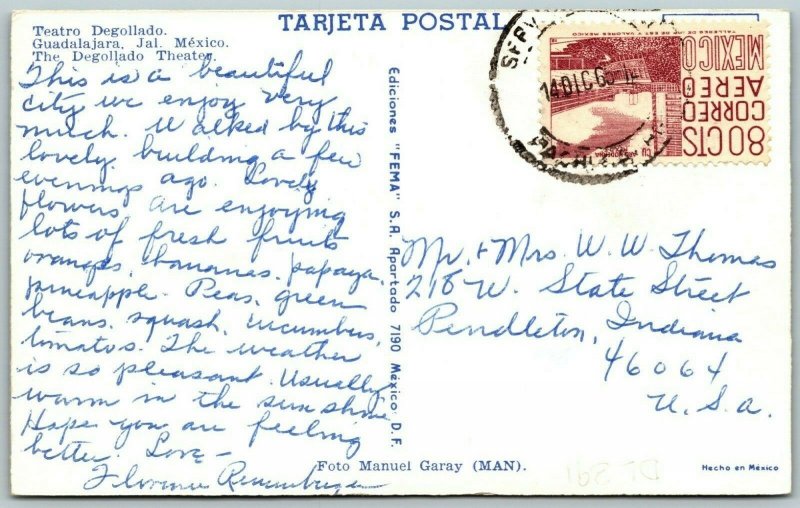 TARJETA POSTAL
Teatro Degollado.
Guadalajara, Jal. México.
The Degollado Theater.
This is a beautiful
city we enjoy very
much. Walked by this
lovely building a few
evenings ago. Lovely
flowers are enjoying
lots of fresh fruits
oranges, bananas, papaya,
pineapple. Peas, green
beans, squash, cucumbers,
tomatos. The weather
is so pleasant. Usually
warm in the sun shine
Hope you are feeling
better. Love—
Florence
Ediciones "FEMA" S.A. Apartado 7190 México, D.F.
MEXICO
AEREO
CORREO
80 CTS
14 DIC 6
Mr. + Mrs. W. W. Thomas
218 W. State Street
Pendleton, Indiana
46064
U.S.A.
Foto Manuel Garay (MAN).
Hecho en México
DL 391